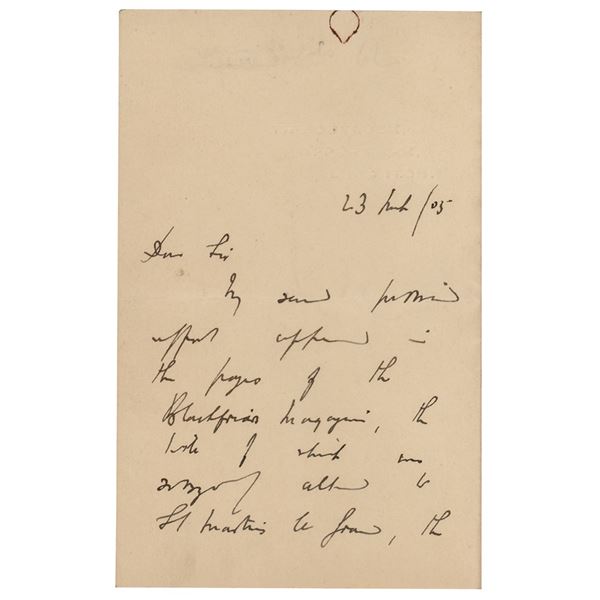 23 Feb /05
Dear Sir
My second
effort appeared in
the pages of the
Blackfriars Magazine, the
title of which was
altered to
St Martin's le Grand, the